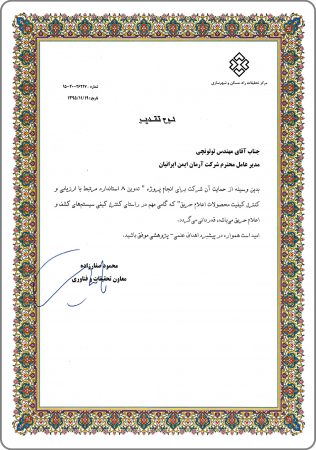 مرکز تحقیقات راه، مسکن و شهرسازی
تاریخ: ۱۳۹۵/۱۱/۱۹
لوح تقدیر
جناب آقای مهندس توتونچی
مدیر عامل محترم شرکت آرمان ایمن ایرانیان
بدین وسیله از حمایت آن شرکت برای انجام پروژه " تدوین ۸ استاندارد مرتبط با ارزیابی و
کنترل کیفیت محصولات اعلام حریق" که گامی مهم در راستای کنترل کیفی سیستم‌های کشف و
اعلام حریق می‌باشد، قدردانی می‌گردد.
امید است همواره در پیشبرد اهداف علمی- پژوهشی موفق باشید.
محمود صفارزاده
معاون تحقیقات و فناوری